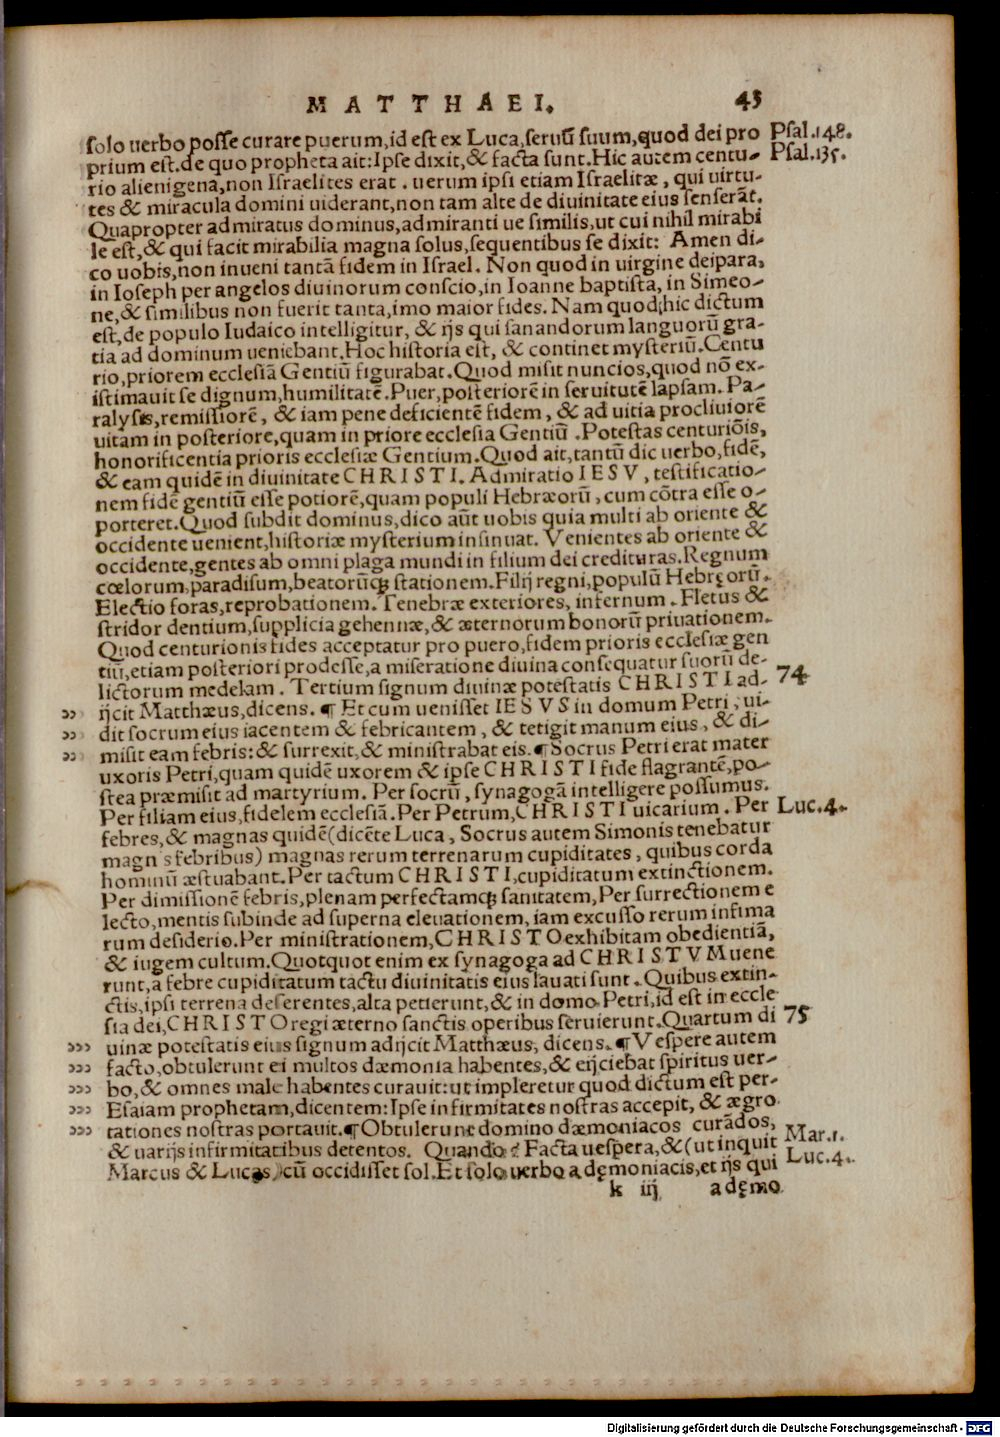 MATTHAEI. 45
solo uerbo posse curare puerum, id est ex Luca, seruũ suum, quod dei pro Psal.148.
prium est. de quo propheta ait: Ipse dixit, & facta sunt. Hic autem centu- Psal.135.
rio alienigena, non Israelites erat. uerum ipsi etiam Israelitæ, qui uirtu-
tes & miracula domini uiderant, non tam alte de diuinitate eius senserãt.
Quapropter admiratus dominus, admiranti ue similis, ut cui nihil mirabi
le est, & qui facit mirabilia magna solus, sequentibus se dixit: Amen di-
co uobis, non inueni tantã fidem in Israel. Non quod in uirgine deipara,
in Ioseph per angelos diuinorum conscio, in Ioanne baptista, in Simeo-
ne, & similibus non fuerit tanta, imo maior fides. Nam quod hic dictum
est, de populo Iudaico intelligitur, & ijs qui sanandorum languorũ gra-
tia ad dominum ueniebant. Hoc historia est, & continet mysteriũ. Centu
rio, priorem ecclesiã Gentiũ figurabat. Quod misit nuncios, quod nõ ex-
istimauit se dignum, humilitatẽ. Puer, posteriorẽ in seruitutẽ lapsam. Pa-
ralysis, remissiorẽ, & iam pene deficientẽ fidem, & ad uitia procliuiorẽ
uitam in posteriore, quam in priore ecclesia Gentiũ. Potestas centuriõis,
honorificentia prioris ecclesiæ Gentium. Quod ait, tantũ dic uerbo, fidẽ,
& eam quidẽ in diuinitate CHRISTI. Admiratio IESV, testificatio-
nem fidẽ gentiũ esse potiorẽ, quam populi Hebræorũ, cum cõtra esse o-
porteret. Quod subdit dominus, dico aũt uobis quia multi ab oriente &
occidente uenient, historiæ mysterium insinuat. Venientes ab oriente &
occidente, gentes ab omni plaga mundi in filium dei credituras. Regnum
cœlorum, paradisum, beatorũq; stationem. Filij regni, populũ Hebręorũ.
Electio foras, reprobationem. Tenebræ exteriores, infernum. Fletus &
stridor dentium, supplicia gehennæ, & æternorum bonorũ priuationem.
Quod centurionis fides acceptatur pro puero, fidem prioris ecclesiæ gen
tiũ, etiam posteriori prodesse, a miseratione diuina consequatur suorũ de-
lictorum medelam. Tertium signum diuinæ potestatis CHRISTI ad- 74
ijcit Matthæus, dicens. ¶ Et cum uenisset IESVS in domum Petri, ui-
dit socrum eius iacentem & febricantem, & tetigit manum eius, & di-
misit eam febris: & surrexit, & ministrabat eis. ¶ Socrus Petri erat mater
uxoris Petri, quam quidẽ uxorem & ipse CHRISTI fide flagrantẽ, po-
stea præmisit ad martyrium. Per socrũ, synagogã intelligere possumus.
Per filiam eius, fidelem ecclesiã. Per Petrum, CHRISTI uicarium. Per Luc.4.
febres, & magnas quidẽ (dicẽte Luca, Socrus autem Simonis tenebatur
magn s febribus) magnas rerum terrenarum cupiditates, quibus corda
hominũ æstuabant. Per tactum CHRISTI, cupiditatum extinctionem.
Per dimissionẽ febris, plenam perfectamq; sanitatem, Per surrectionem e
lecto, mentis subinde ad superna eleuationem, iam excusso rerum infima
rum desiderio. Per ministrationem, CHRISTO exhibitam obedientiã,
& iugem cultum. Quotquot enim ex synagoga ad CHRISTVM uene
runt, a febre cupiditatum tactu diuinitatis eius lauati sunt. Quibus extin-
ctis, ipsi terrena deserentes, alta petierunt, & in domo Petri, id est in eccle
sia dei, CHRISTO regi æterno sanctis operibus seruierunt. Quartum di 75
uinæ potestatis eius signum adijcit Matthæus, dicens. ¶ Vespere autem
facto, obtulerunt ei multos dæmonia habentes, & eijciebat spiritus uer-
bo, & omnes male habentes curauit: ut impleretur quod dictum est per-
Esaiam prophetam, dicentem: Ipse infirmitates nostras accepit, & ægro
tationes nostras portauit. ¶ Obtulerunt domino dæmoniacos curãdos,
& uarijs infirmitatibus detentos. Quando? Facta uespera, & (ut inquit Mar.1.
Marcus & Lucas) cũ occidisset sol. Et solo uerbo a dęmoniacis, et ijs qui Luc.4.
k iij a dęmo
Digitalisierung gefördert durch die Deutsche Forschungsgemeinschaft - DFG